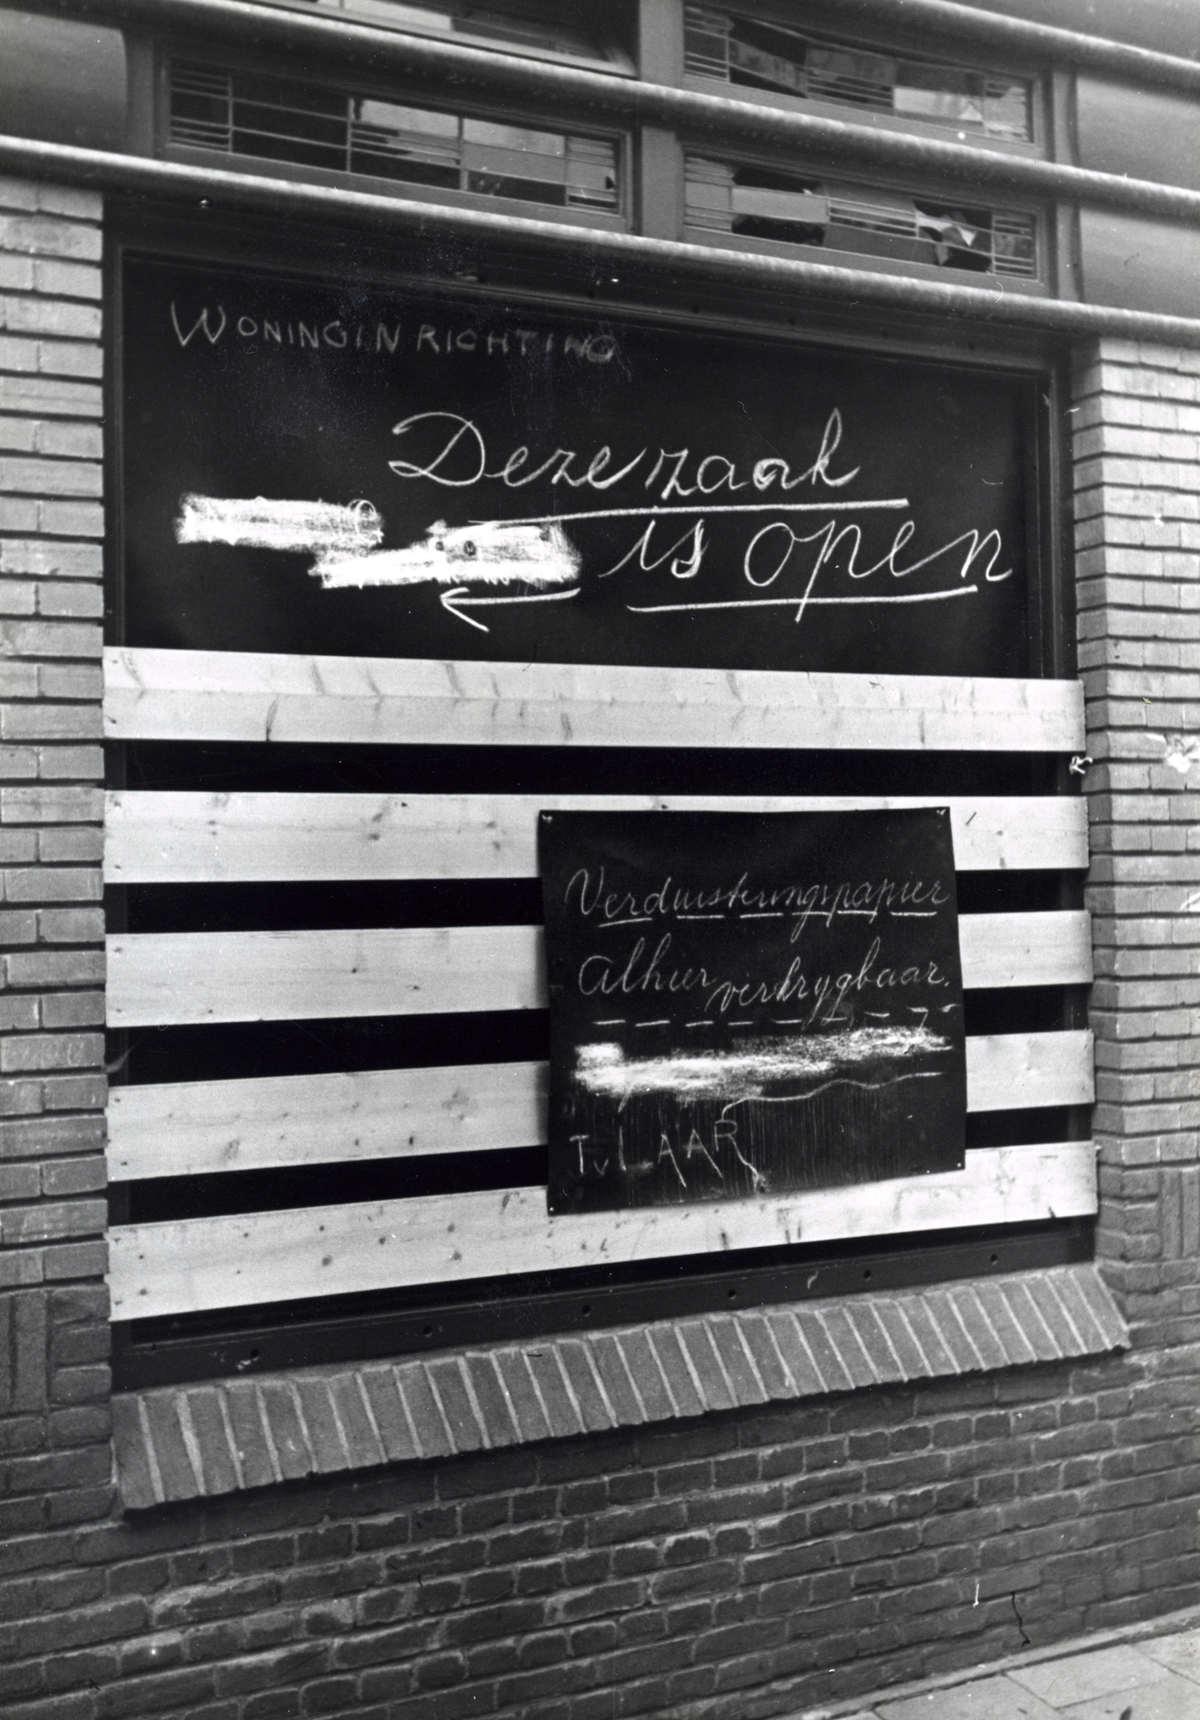 WONINGINRICHTING
Deze zaak
is open
Verduisteringspapier
alhier verkrygbaar.
TvLAAR